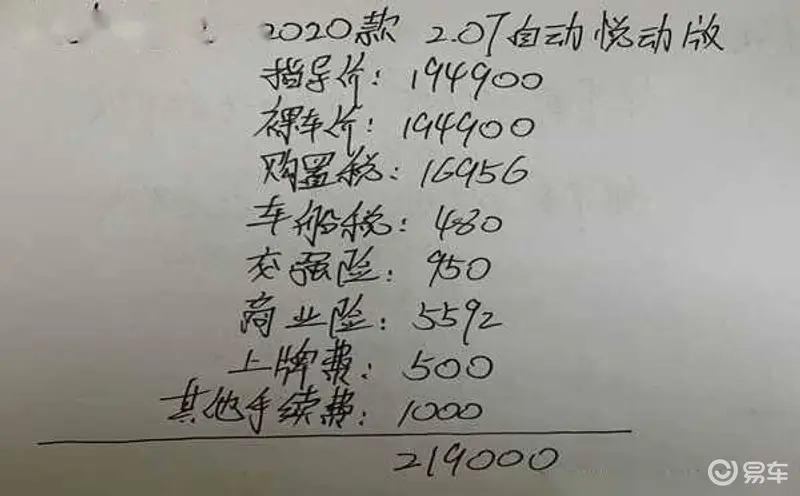 2020款 2.0T自动悦动版
指导价: 194900
裸车价: 194900
购置税: 16956
车船税: 480
交强险: 950
商业险: 5592
上牌费: 500
其他手续费: 1000
219000
易车